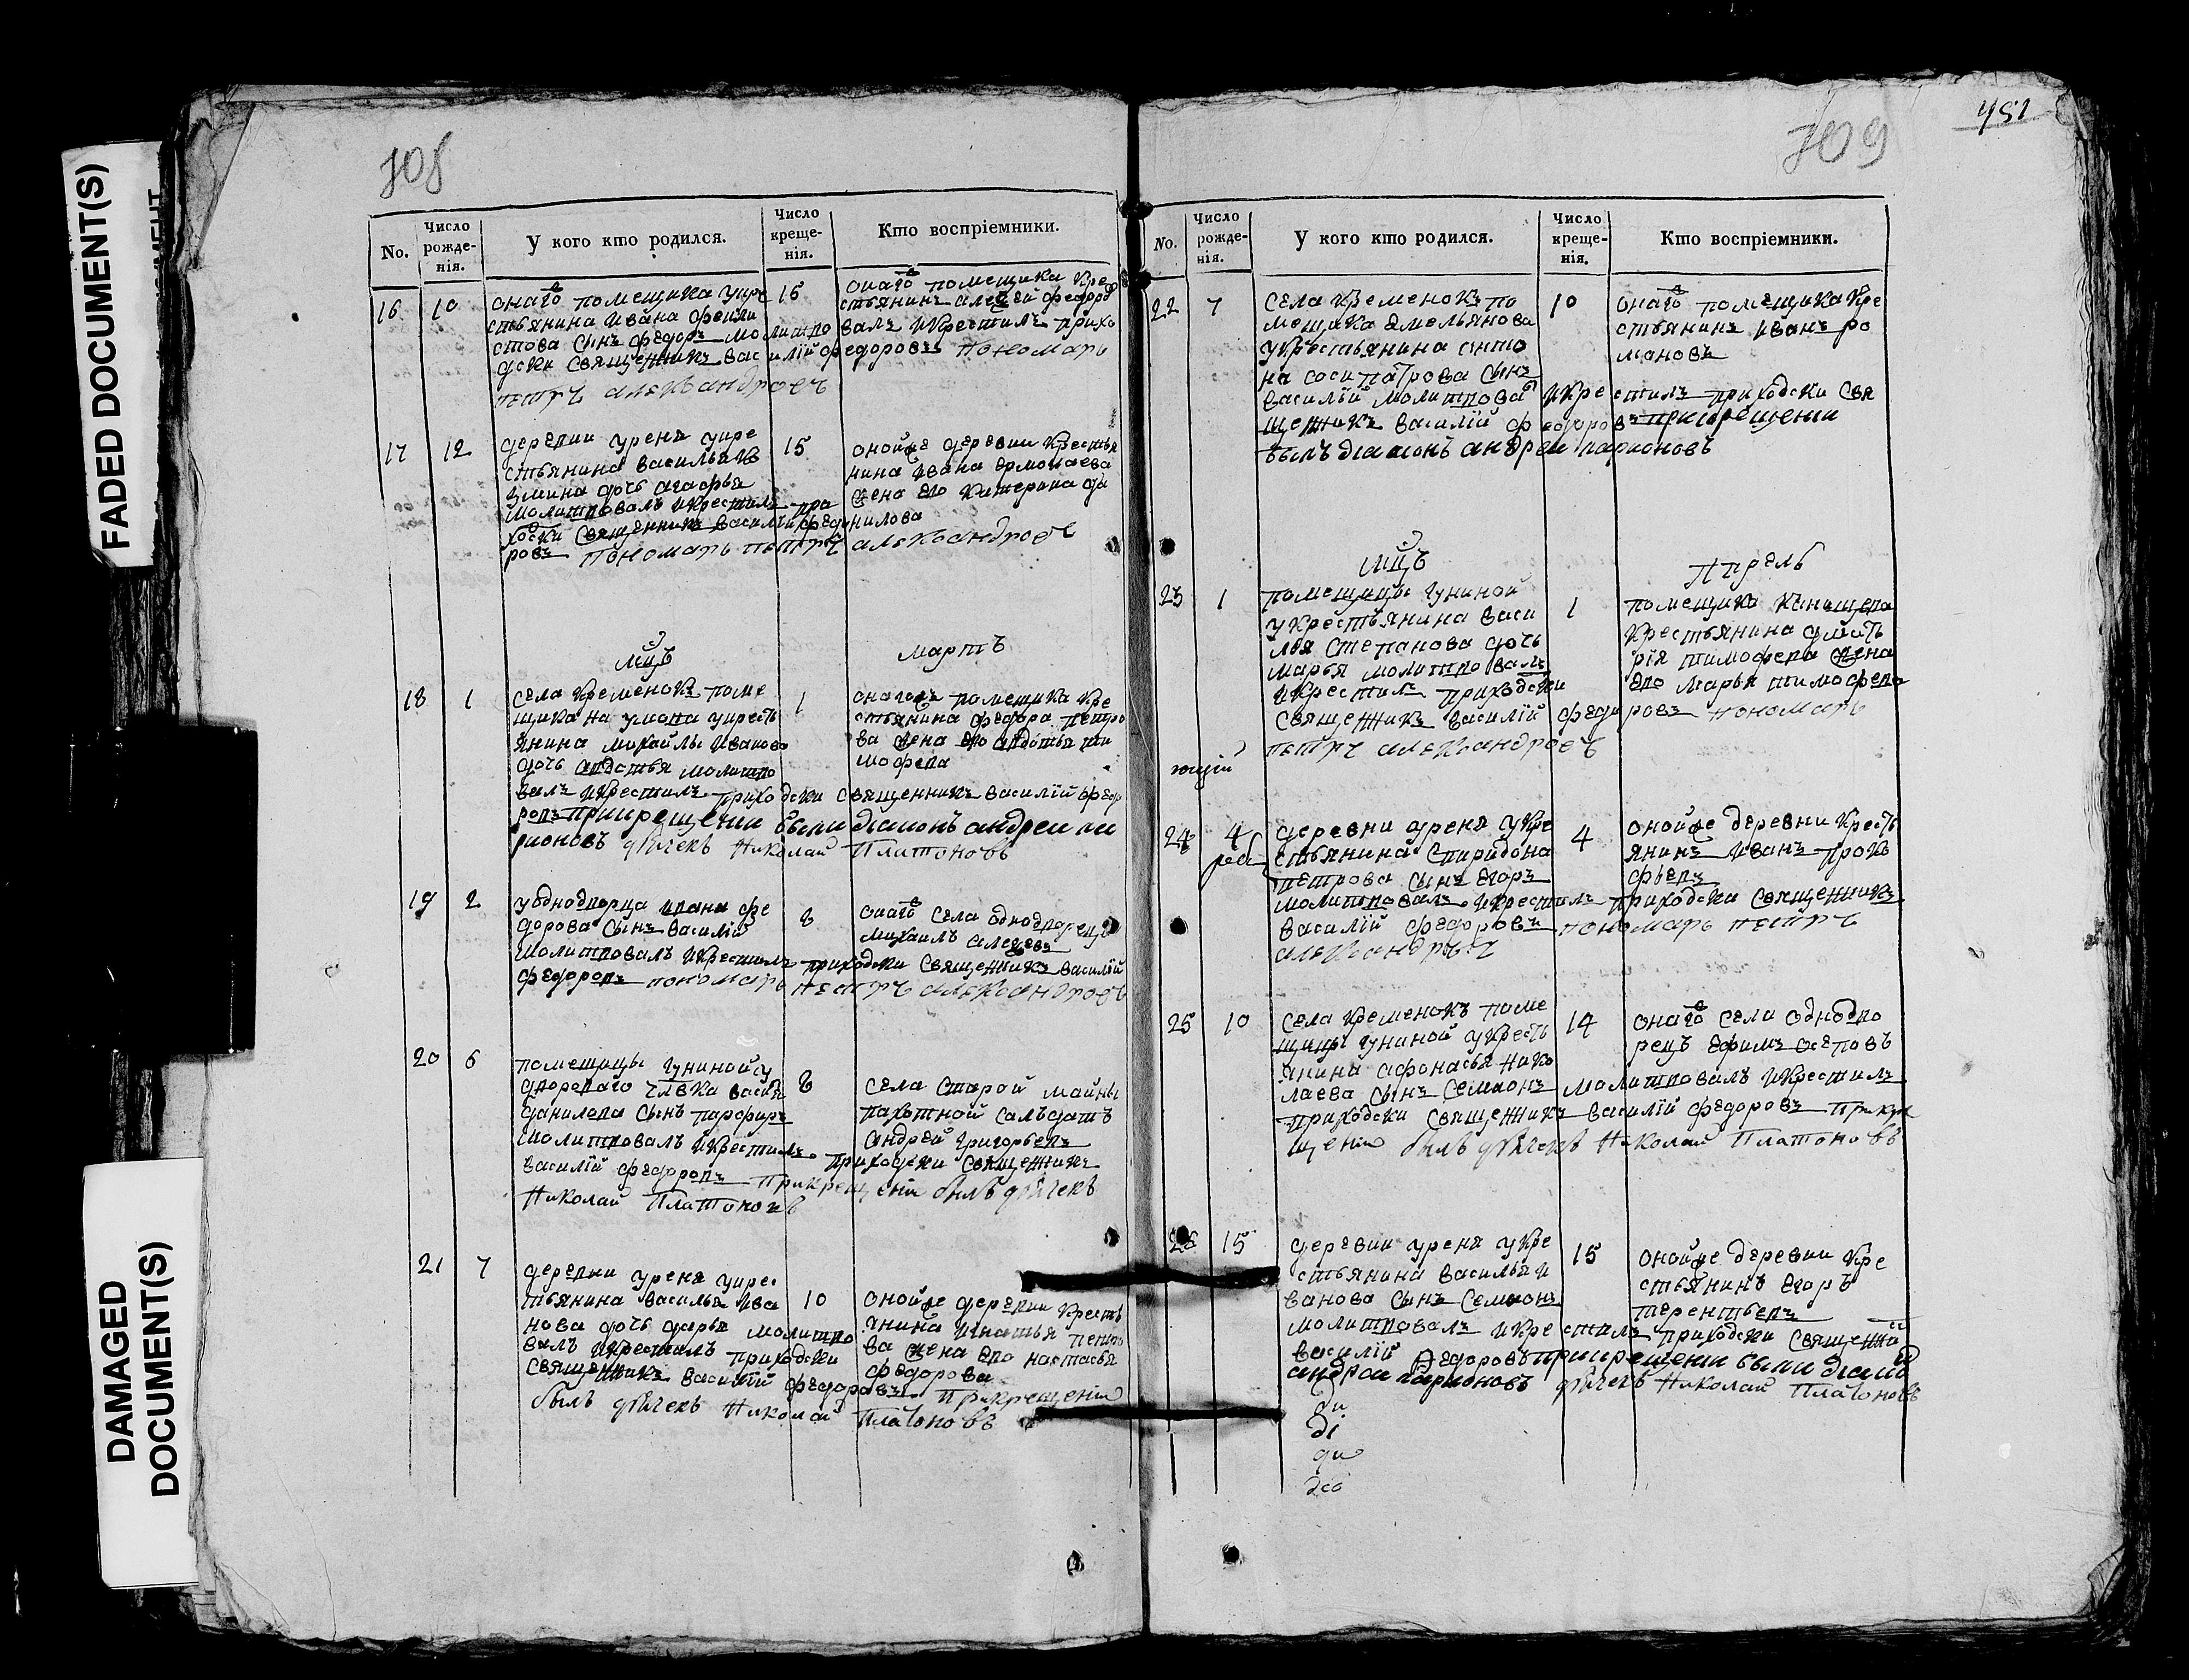 FADED DOCUMENT(S)
DAMAGED
DOCUMENT(S)
708
No.
Число рожденія.
У кого кто родился.
Число крещенія.
Кто воспріемники.
16 10
онаго помещика укре
стьянина ивана
сынъ федоръ молитво
валъ икрестилъ прихо
дски священникъ василій федоровъ пономарь
петръ александровъ
онаго помещика кре
стьянинъ алеѯей федоро
17 12
деревни уреня укре
стьянина василья ку
змина дочь агафья
молитвовалъ икрестилъ при
ходски священникъ василій федо
ровъ пономарь петръ александровъ
15
онойже деревни крестья
нина ивана ермолаева
жена его катерина да
нилова
мцъ мартъ
18 1
села кременокъ поме
щика наумова укресть
янина михайлы иванова
дочь авдотья молитво
валъ икрестилъ приходски священникъ василій федо
ровъ прикрещении были діаконъ андреи ла
рионовъ дьячекъ Николай Платоновъ
1
онагожъ помещика кре
стьянина федора петро
ва жена его авдотья ти
мофева
19 2
уоднодворца ивана фе
дорова сынъ василій
молитвовалъ икрестилъ приходски священникъ василій
федоровъ пономарь петръ александровъ
8
онаго села однодворецъ
михаилъ алеѯевъ
20 6
помещицы гуниной у
двороваго члвка василья
данилова сынъ парфиръ
молитвовалъ икрестилъ приходски священникъ
василій федоровъ Прикрещеніи былъ дьячекъ
Николай Платоновъ
8
села старой майны
пахотной салъдатъ
андрей григорьевъ
21 7
деревни уреня укрес
тьянина василья ива
нова дочь дарья молитво
валъ икрестилъ приходски
священникъ василій федоровъ Прикрещеніи
былъ дьячекъ Николай Платоновъ
10
онойже деревни кресть
янина игнатья петро
ва жена его настасья
федорова
451
709
No.
Число рожденія.
У кого кто родился.
Число крещенія.
Кто воспріемники.
22 7
села кременокъ по
мещика емельянова
укрестьянина анто
на сосипатрова сынъ
василій молитвовалъ икрестилъ приходски свя
щенникъ василій федоровъ прикрещении
былъ діаконъ андреи ларионовъ
10
онаго помещика кре
стьянинъ иванъ ро
мановъ
мцъ Апрель
23 1
помещицы гуниной
укрестьянина васи
лья степанова дочь
марья молитвовалъ
икрестилъ приходски
священникъ василій федоровъ пономарь
петръ александровъ
1
помещика
крестьянина дмить
рія тимофева жена
его марья тимофева
24 4
деревни уреня укре
стьянина спиридона
петрова сынъ егоръ
молитвовалъ икрестилъ приходски священникъ
василій федоровъ пономарь петръ
александровъ
4
онойже деревни кресть
янинъ иванъ проко
фьевъ
25 10
села кременокъ поме
щицы гуниной укресть
янина афонасья нико
лаева сынъ семионъ молитвовалъ икрестилъ
приходски священникъ василій федоровъ прикре
щеніи былъ дьячекъ Николай Платоновъ
14
онаго села однодво
рецъ ефимъ осеповъ
26 15
деревни уреня укре
стьянина василья и
ванова сынъ семионъ
молитвовалъ икрестилъ приходски священни
василій федоровъ прикрещении были діако
андреи ларионовъ дьячекъ Николай Платоновъ
15
онойже деревни кре
стьянинъ егоръ
терентьевъ
ди
ді
ди